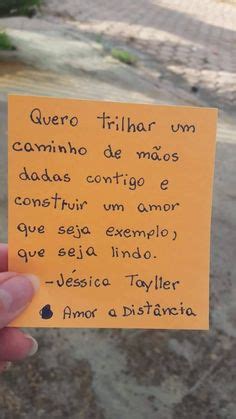 Quero trilhar um
caminho de mãos
dadas contigo e
construir um amor
que seja exemplo,
que seja lindo.
-Jéssica Tayller
Amor a Distância